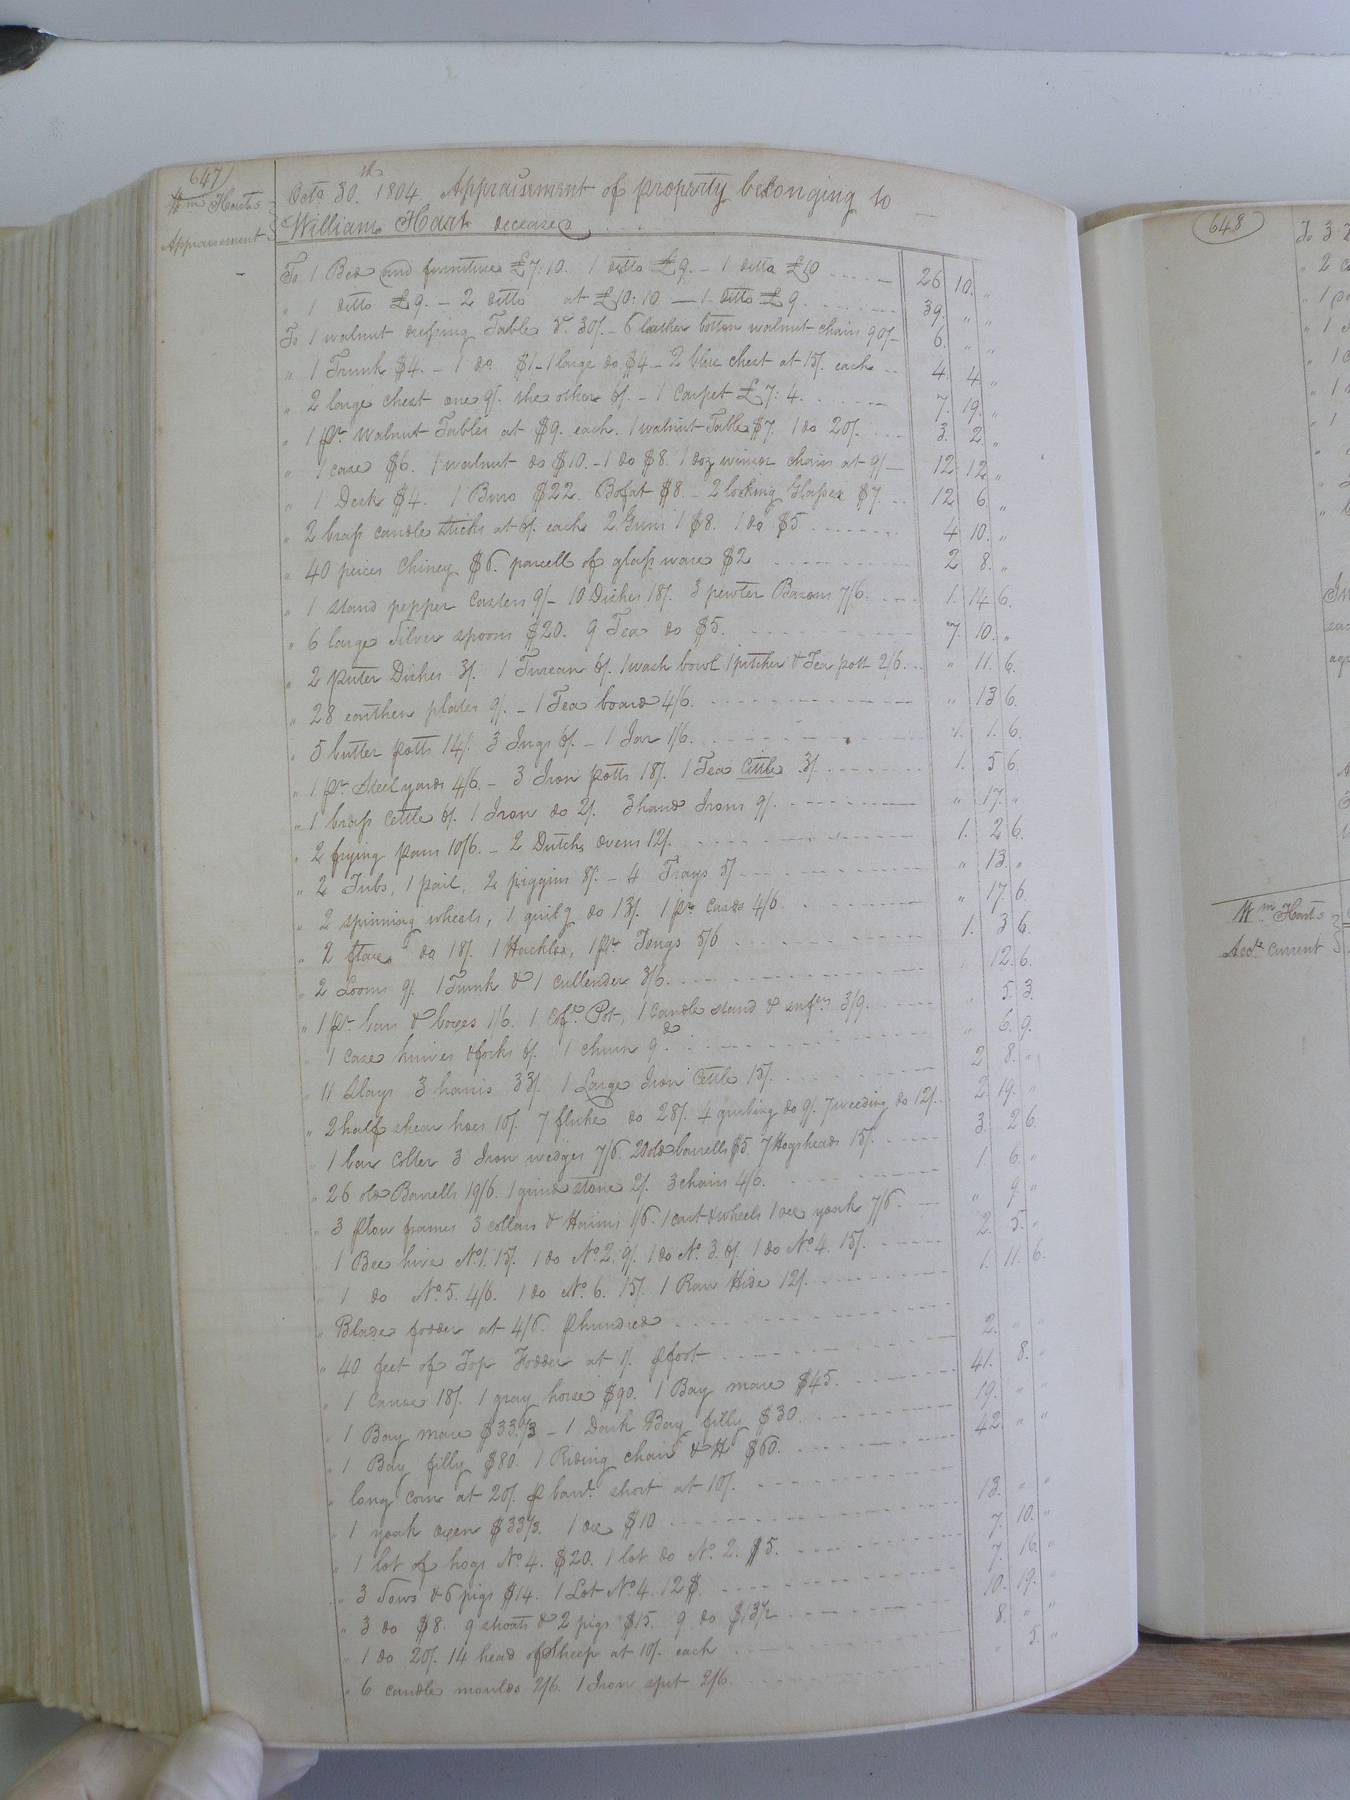 647
Wm Harts
Appraisement
Octo 30.th 1804. Appraisement of property belonging to
William Hart deceased
To 1 Bed and furniture £7:10. 1 ditto £9. – 1 ditto £10 26 10. "
" 1 ditto £9. – 2 ditto at £10:10 — 1 ditto £9. 39. " "
To 1 walnut dressing Table 30/. – 6 leather bottom walnut chairs 90/– 6. " "
" 1 Trunk $4. – 1 do $1 – 1 large do $4 – 2 blue chest at 15/. each 4. 4 "
" 2 large chest one 9/. the other 6/. – 1 Carpet £7:4. 7. 19. "
" 1 pr. Walnut Tables at $9. each. 1 walnut Table $7. 1 do 20/. 3. 2. "
" 1 case $6. 1 walnut do $10. – 1 do $8. 1 doz winsor chairs at 9/– 12 12 "
" 1 Desk $4. 1 Buro $22. Bofat $8. – 2 looking Glasses $7. 12 6 "
" 2 brass candle sticks at 6/. each 2 Guns 1 $8. 1 do $5 4 10. "
" 40 peices Chiney $6. parcell of glass ware $2 2 8. "
" 1 stand pepper Casters 9/– 10 Dishes 18/. 3 pewter Basons 7/6. 1. 14 6.
" 6 large Silver spoons $20. 9 Tea do $5. 7. 10. "
" 2 puter Dishes 3/. 1 Turean 6/. 1 wash bowl 1 pitcher & Tea pott 2/6. " 11. 6.
" 28 earthen plates 9/. – 1 Tea board 4/6. " 13 6.
" 5 butter potts 14/. 3 Jugs 6/. – 1 Jar 1/6. 1. 1. 6.
" 1 pr. Steelyards 4/6. – 3 Iron potts 18/. 1 Tea Cittle 3/. 1. 5 6.
" 1 brass Cettle 6/. 1 Iron do 2/. 3 hand Irons 9/. " 17. "
" 2 frying pans 10/6. – 2 Dutch ovens 12/. 1. 2 6.
" 2 Tubs, 1 pail, 2 piggins 8/. – 4 Trays 5/ " 13. "
" 2 spinning wheels, 1 quilg do 13/. 1 pr cards 4/6. " 17 6.
" 2 flax do 18/. 1 Hackle, 1 pr. Tongs 5/6 1. 3 6.
" 2 Looms 9/. 1 Trunk & 1 cullender 3/6. " 12. 6.
" 1 pr. bars & boxes 1/6. 1 Coff. Pot, 1 Candle stand & snufrs 3/9. " 5. 3.
" 1 case knives & forks 6/. 1 churn 9d " 6. 9.
" 11 Slays 3 harnis 33/. 1 Large Iron Cettle 15/. 2 8. "
" 2 half shear hoes 10/. 7 fluke do 28/. 4 grubing do 9/. 7 weeding do 12/. 2. 19. "
" 1 bar Colter 3 Iron wedges 7/6. 20 old barrells $5. 7 Hogsheads 15/. 3. 2 6.
" 26 old Barrells 19/6. 1 grind stone 2/. 3 chairs 4/6. 1. 6. "
" 3 Plow frames 3 collars & Haims 1/6. 1 cart & wheels 1 ox yoak 7/6. " 9. "
" 1 Bee hive No.1. 15/. 1 do No.2. 9/. 1 do No. 3. 6/. 1 do No. 4. 15/. 2. 5. "
" 1 do No.5. 4/6. 1 do No. 6. 15/. 1 Raw Hide 12/. 1. 11. 6.
" Blade fodder at 4/6. phundred
" 40 feet of Top Fodder at 1/. pfoot 2. " "
" 1 Canoe 18/. 1 gray horse $90. 1 Bay mare $45. 41. 8. "
" 1 Bay mare $33.1/3 – 1 Dark Bay filly $30. 19. " "
" 1 Bay filly $80. 1 Riding chair & H $60. 42 " "
" long corn at 20/. p barl. short at 10/.
" 1 yoak oxen $33 1/3. 1 ox $10 13. " "
" 1 lot of hogs No. 4. $20. 1 lot do No. 2. $5. 7. 10. "
" 3 Sows & 6 pigs $14. 1 Lot No. 4. 12$. 7. 16. "
" 3 do $8. 9 shoats & 2 pigs $15. 9 do $13 1/2 10. 19. "
" 1 do 20/. 14 head of Sheep at 10/. each 8. " "
" 6 candle moulds 2/6. 1 Iron spit 2/6. " 5. "
648
To 3
" 2
" 1
" 1
" 1
" 1
" 1
Wm Harts
Acct. Current